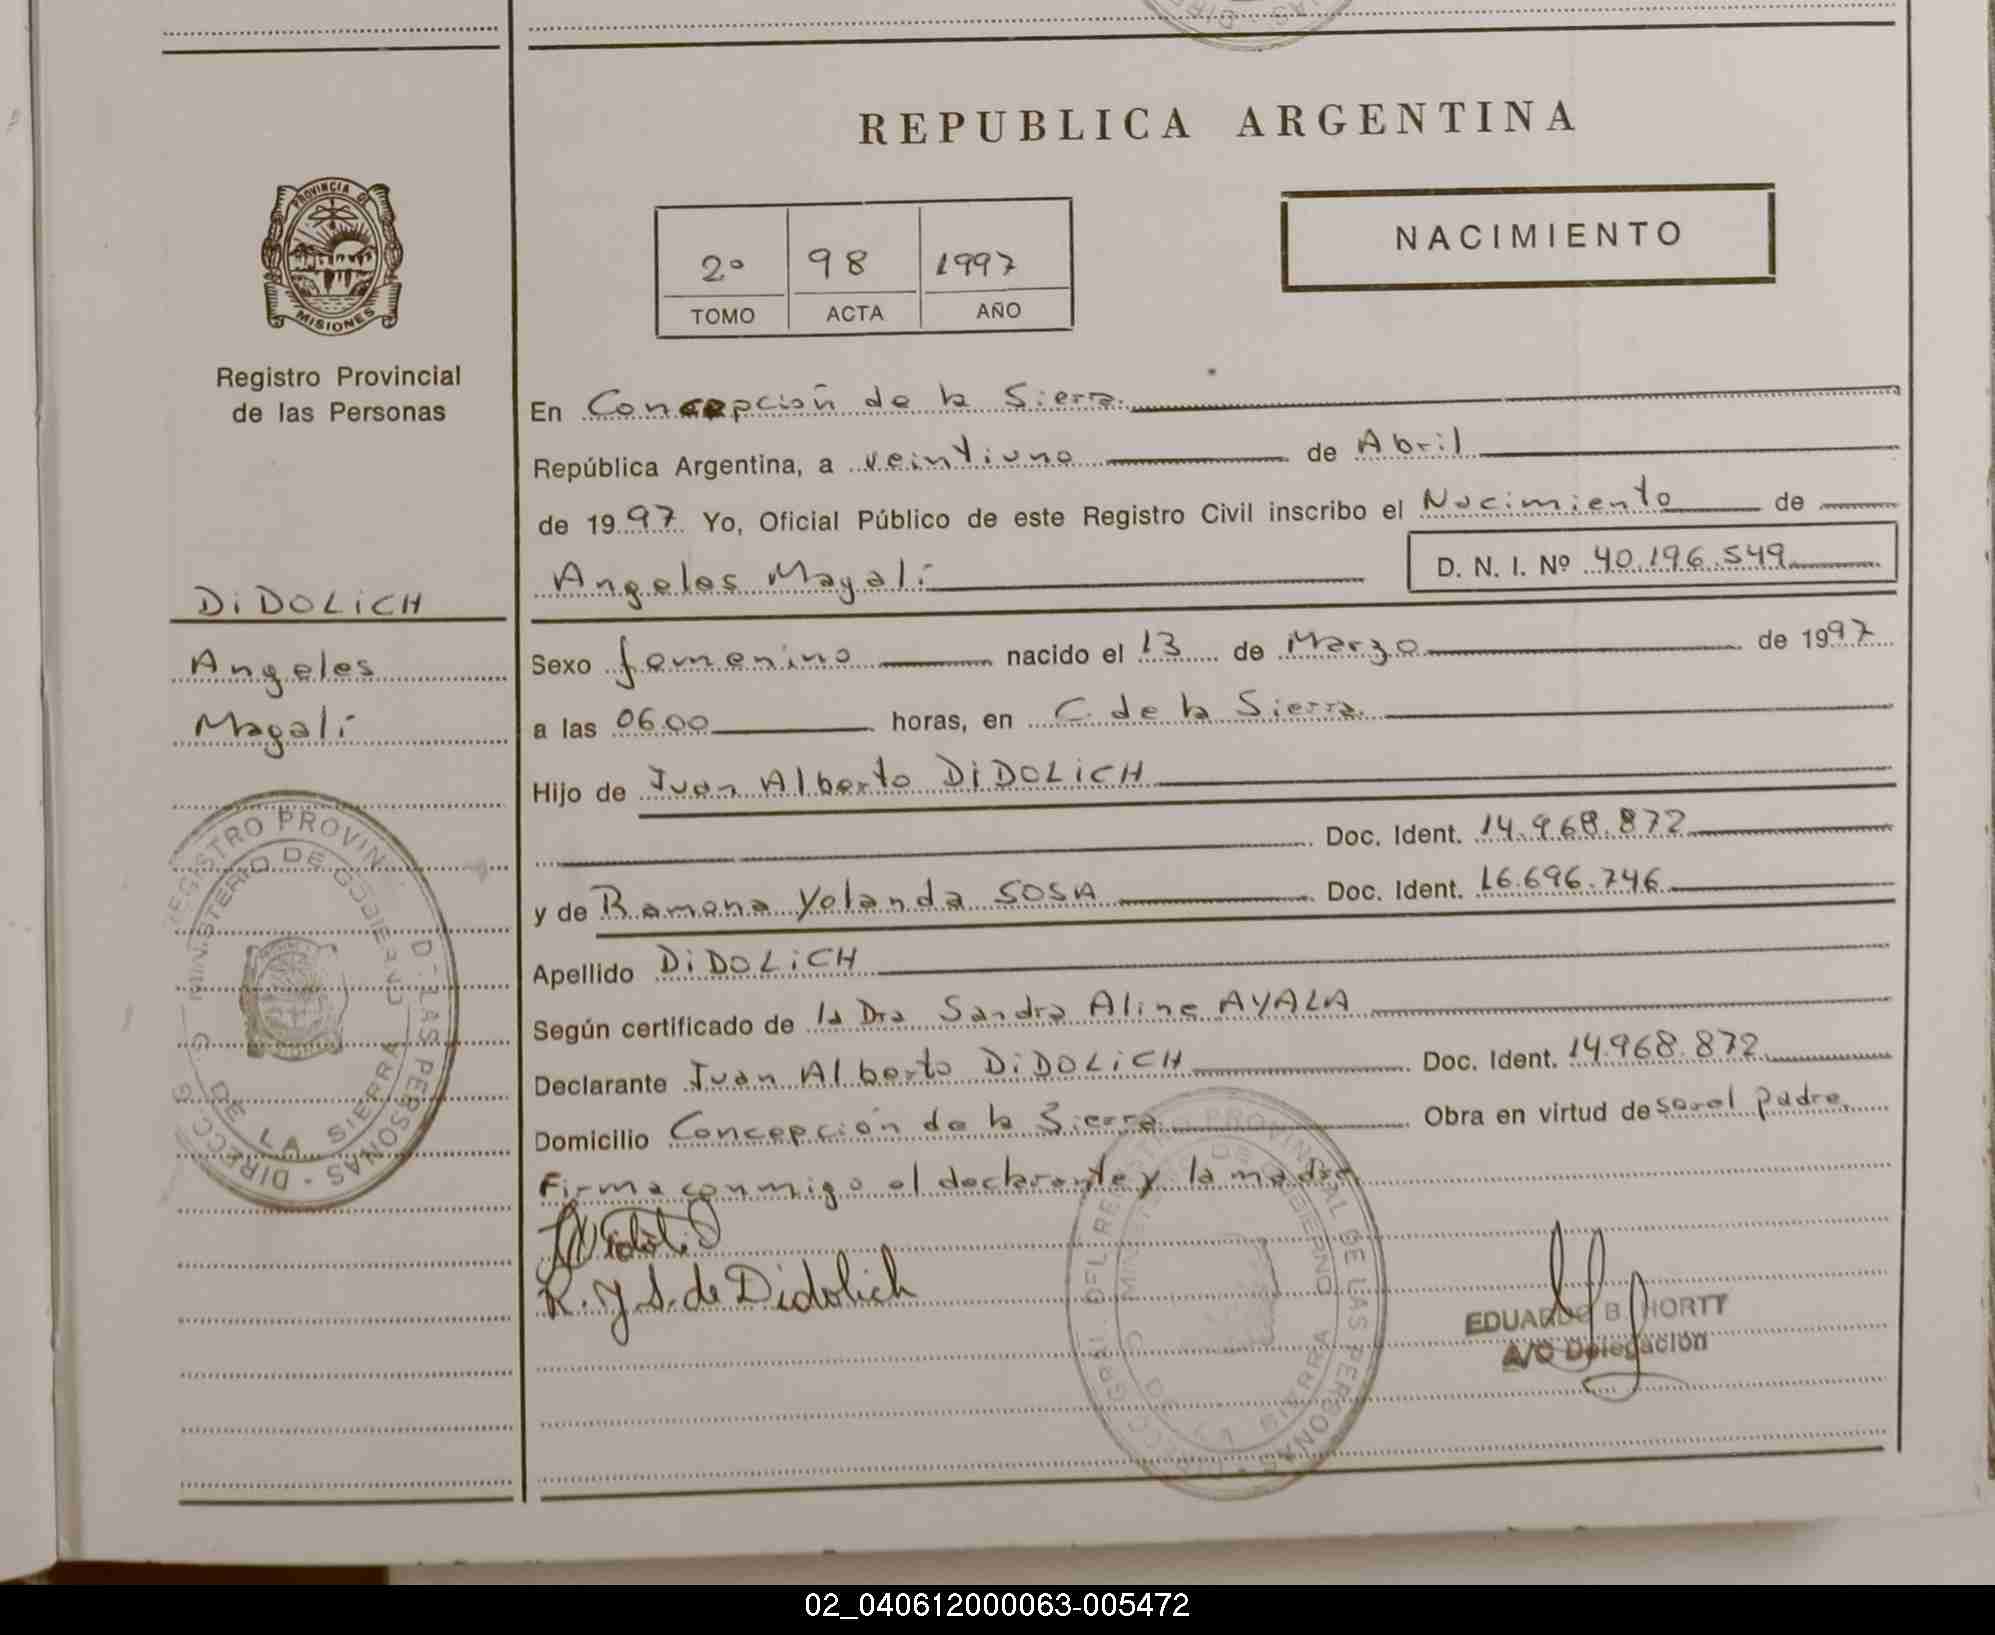 REPUBLICA ARGENTINA
PROVINCIA DE
MISIONES
Registro Provincial
de las Personas
2º 98 1997
TOMO ACTA AÑO
NACIMIENTO
DiDOLiCH
Angeles
Magalí
En Concepción de la Sierra.
República Argentina, a veintiuno de Abril
de 1997 Yo, Oficial Público de este Registro Civil inscribo el Nacimiento de
Angeles Magalí D. N. I. Nº 40.196.549
Sexo femenino nacido el 13 de Marzo de 1997
a las 06.00 horas, en C. de la Sierra.
Hijo de Juan Alberto DiDOLiCH
Doc. Ident. 14.968.872
y de Ramona Yolanda SOSA Doc. Ident. 16.696.746
Apellido DiDOLiCH
Según certificado de la Dra Sandra Aline AYALA
Declarante Juan Alberto DiDOLiCH Doc. Ident. 14.968.872
Domicilio Concepción de la Sierra Obra en virtud de ser el padre.
Firma conmigo el declarante y la madre.
R. Y S. de Didolich
EDUARDO B. HORTT
A/C Delegación
REGISTRO PROVIN D LAS PERSONAS - DIRECC. G
MINISTERIO DE GOBIERNO
DE LA SIERRA
DIRECC. GRAL. DEL REGISTRO PROVINCIAL DE LAS PERSONAS
MINISTERIO DE GOBIERNO
SIERRA
02_040612000063-005472